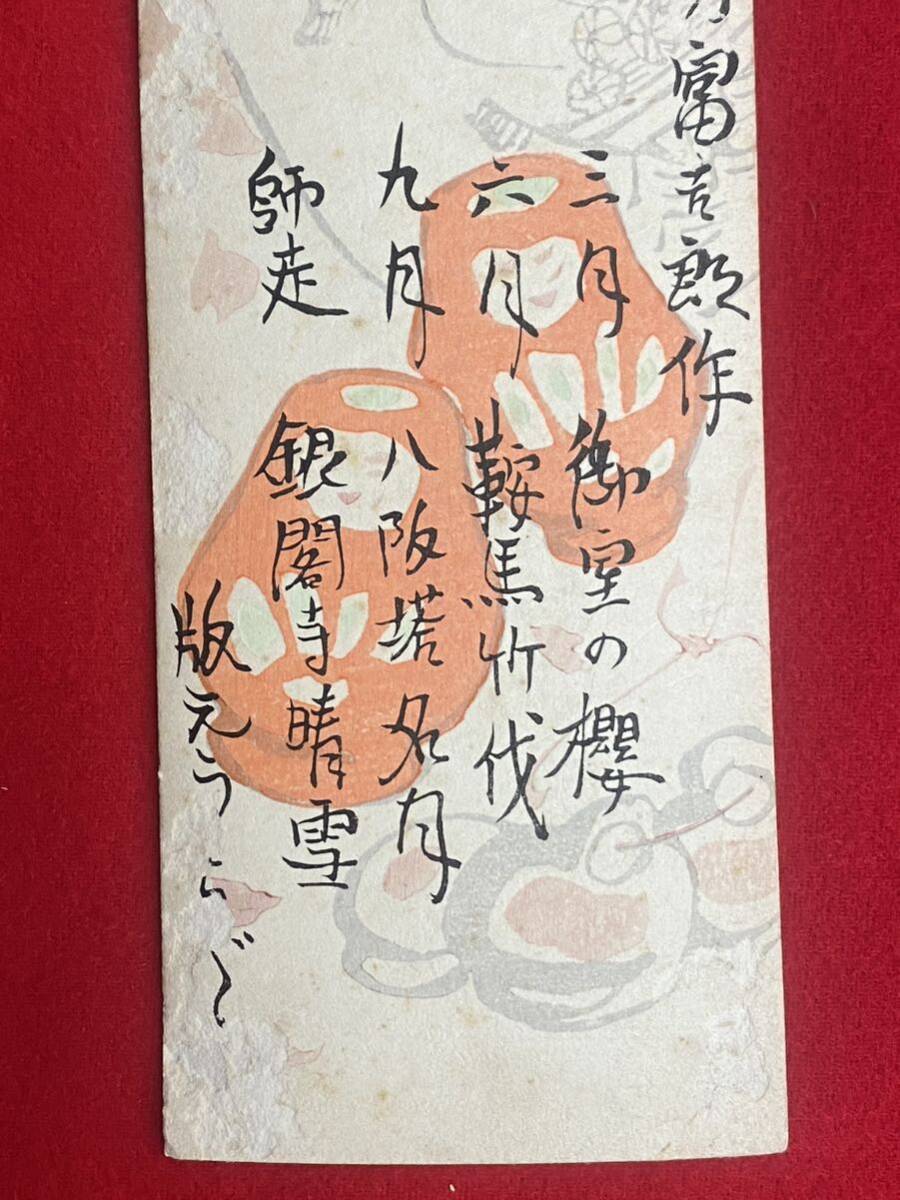 富吉郎作
三月 御室の櫻
六月 鞍馬竹伐
九月 八阪塔名月
師走 銀閣寺晴雪
版元うちだ